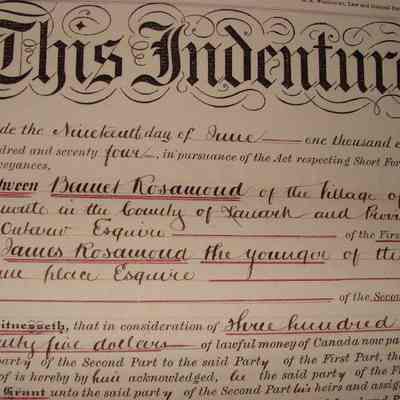 Law and General
This Indenture
de the Nineteenth day of June one thousand e
dred and seventy four, in pursuance of the Act respecting Short For
veyances,
tween Bennet Rosamond of the Village of
in the County of Lanark and Provi
Ontario Esquire of the First
James Rosamond the younger of the
me place Esquire
of the Secon
itnesseth, that in consideration of Three hundred
ty five dollars of lawful money of Canada now pa
party of the Second Part to the said Party of the First Part, the
of is hereby by him acknowledged, he the said party of the Fi
Grant unto the said party of the Second Part his heirs and assig